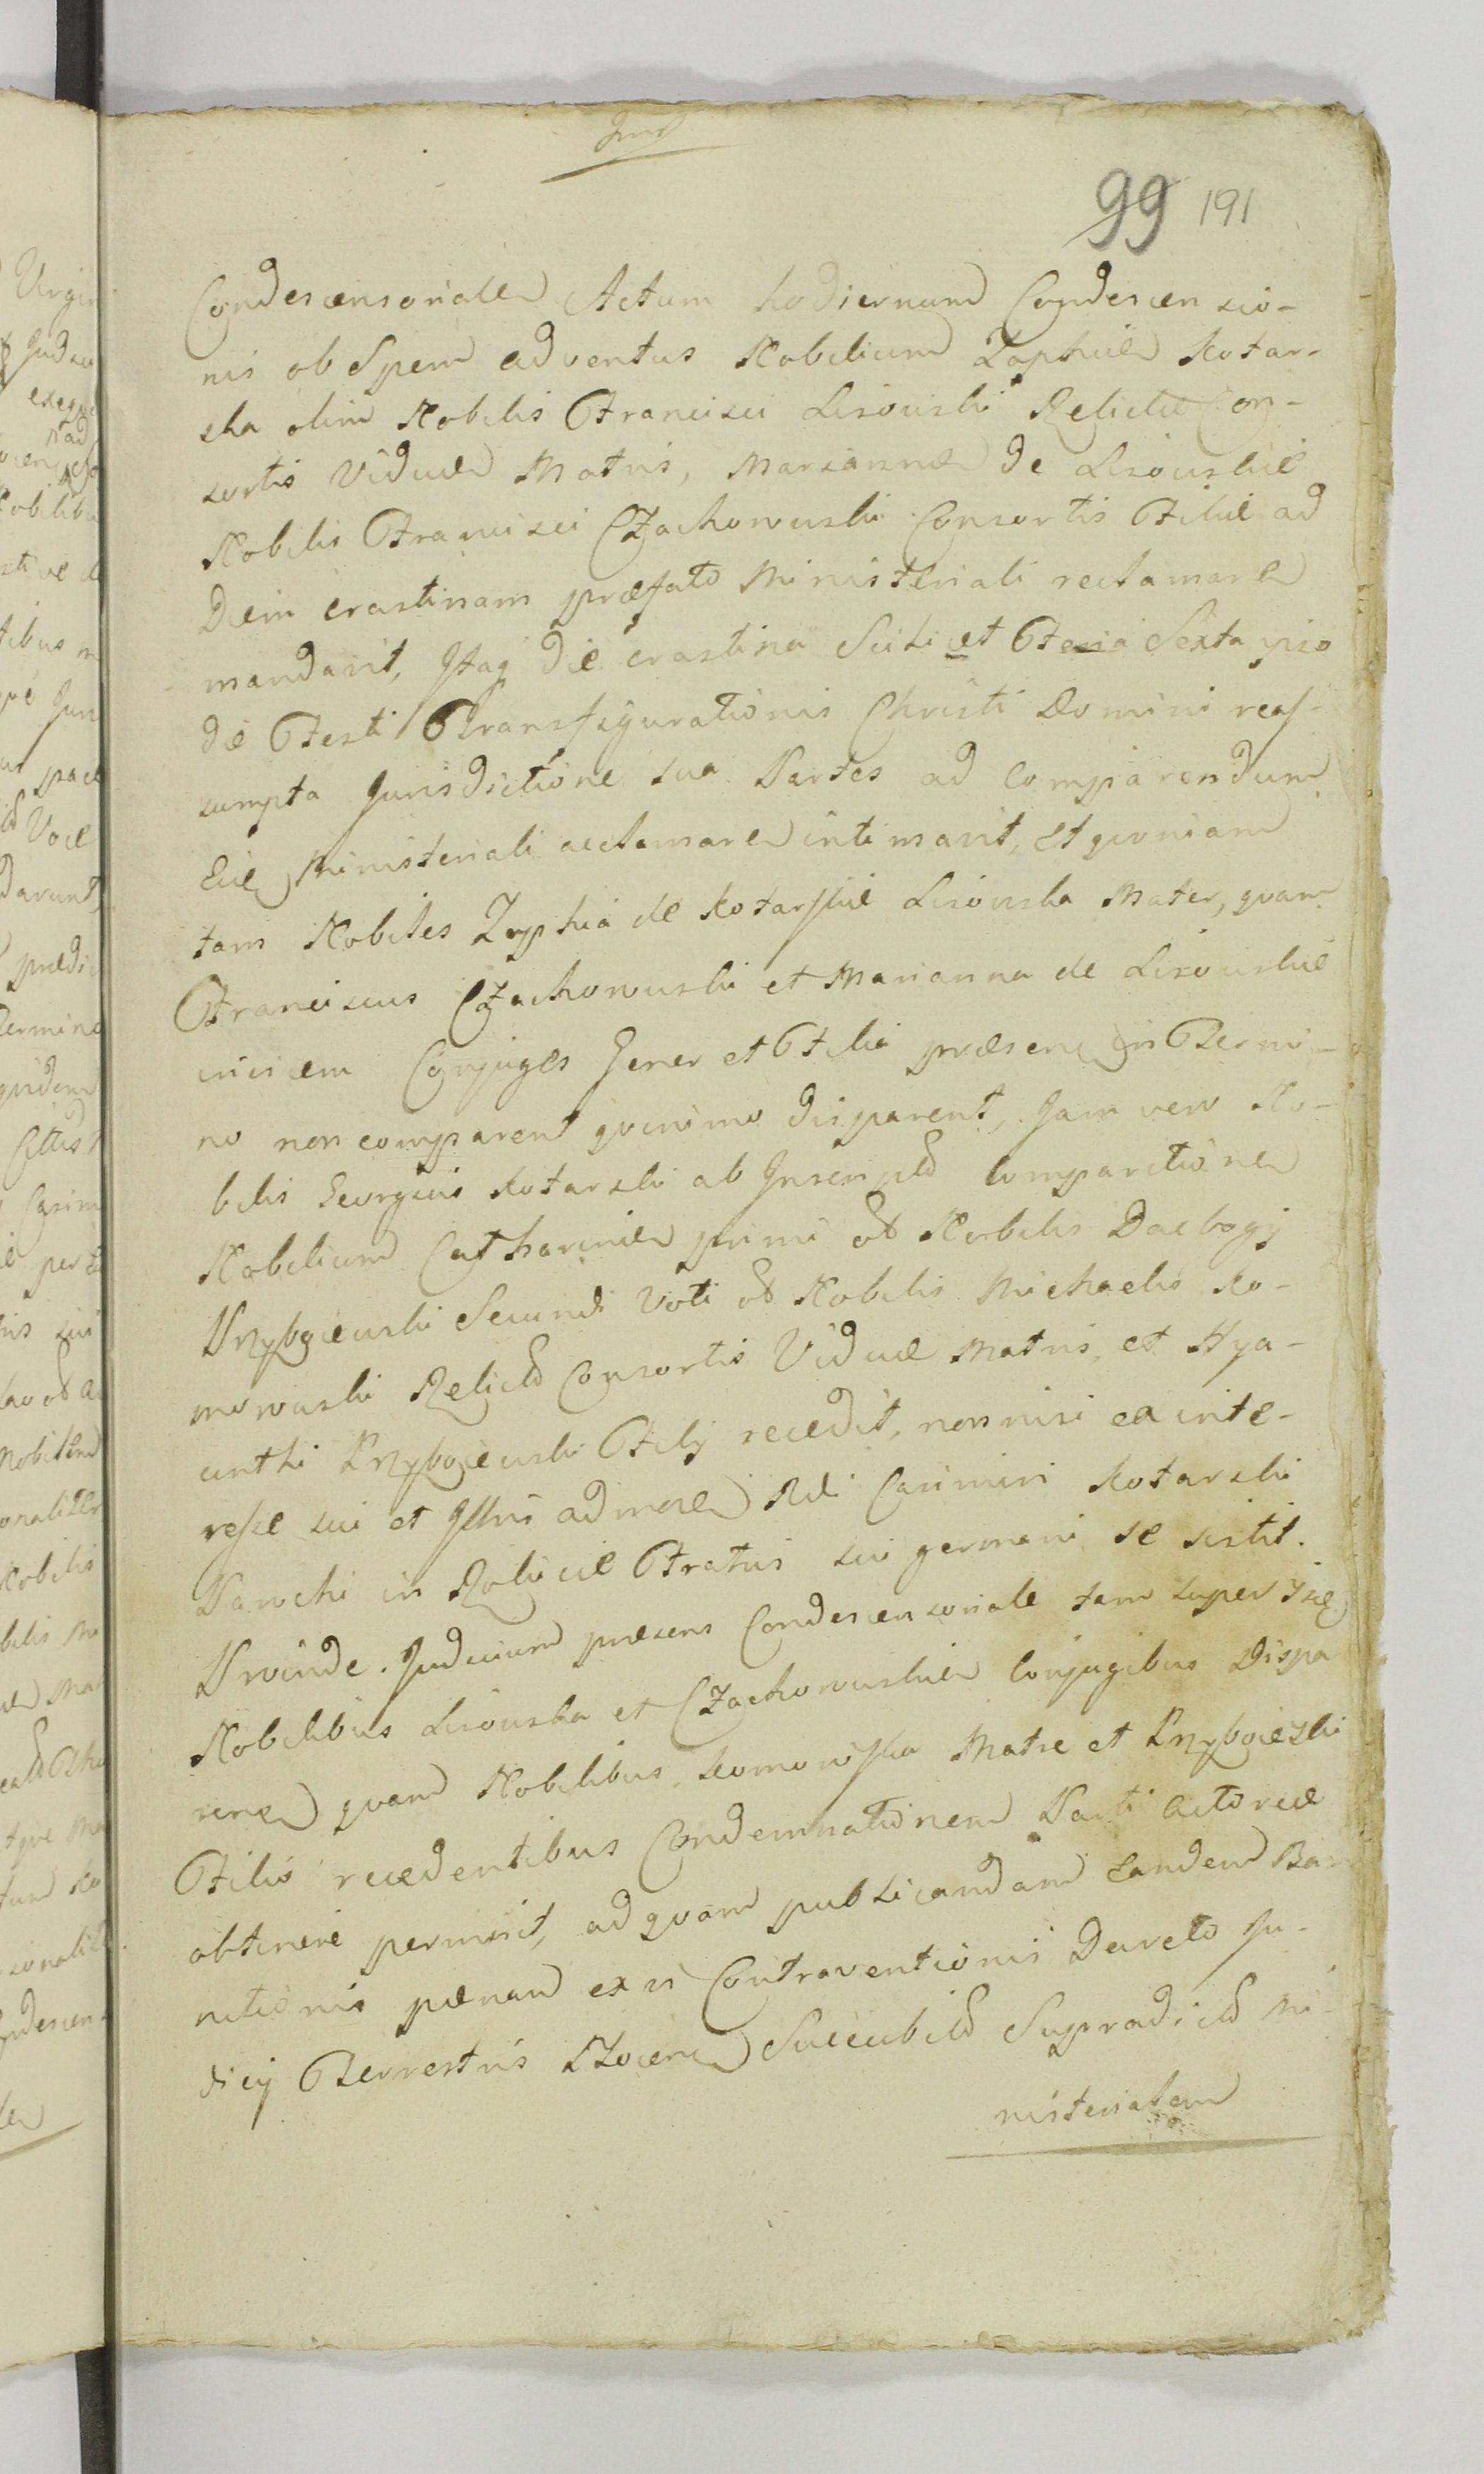 99 191
Condescensoriale Actum hodiernum Condescensio-
nis ob Spem adventus Nobilium Zophiæ Kotar-
ska olim Nobilis Francisci Lisowski Relictæ Con-
sortis Viduæ Matris, Mariannæ de Lisowskie
Nobilis Francisci Czachorowski Consortis Filiæ ad
Diem crastinam præfato Ministeriali reclamare
mandavit, Itaq die crastina Scilicet Feria Sexta ipso
die Festi Transfigurationis Christi Domini reas-
sumpta Jurisdictione sua Partes ad Comparendum
Ministeriali acclamare intimavit, Et quoniam
tam Nobiles Zophia de Kotarskie Lisowska Mater, quam
Franciscus Czachorowski et Marianna de Lisowskie
invicem Conjuges Gener et Filia præsen in Termi-
no non comparent quinimo disparent, Jam vero No-
bilis Georgius Kotarski ab Inscrip comparitione
Nobilium Catharinæ primi ol Nobilis Dacbogij
Przybojewski Secundi Voti ol Nobilis Michaelis Ko-
morowski Relict Consortis Viduæ Matris, et Hya-
cinthi Przybojewski Filij recedit, nonnisi ex inte-
resse sui et Illris admore Rdi Casimiri Kotarski
Parochi in Rokicie Fratris sui germani se sistit.
Proinde Judicium præsens Condescensoriale tam super ijs
Nobilibus Lisowska et Czachorowskie Conjugibus Dispa
rene quam Nobilibus Komorowska Matre et Przybojewski
Filio recedentibus Condemnationem Parti Actoreæ
obtinere permisit, ad quam publicandam Eandem Ban
nitionis pœnam ex vi Contraventionis Decreto Ju-
dicij Terrestris Plocen Succubit Supradict Mi-
nisterialem